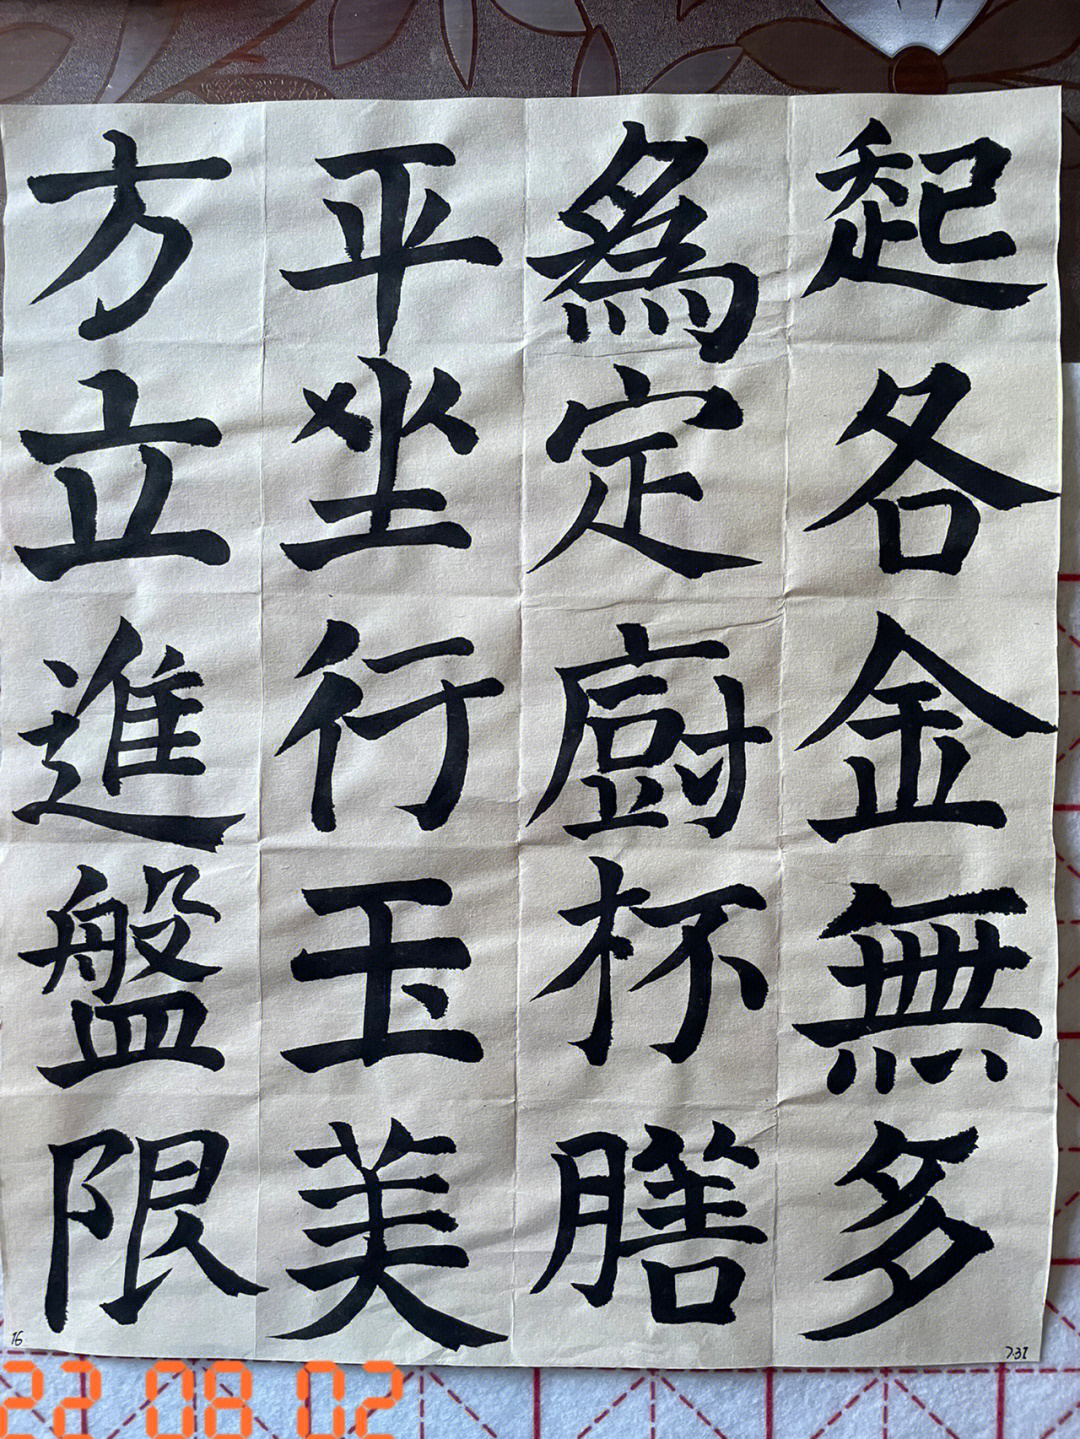 起各金無多
為定廚杯膳
平坐行玉美
方立進盤限
16
7.31
22 08 02